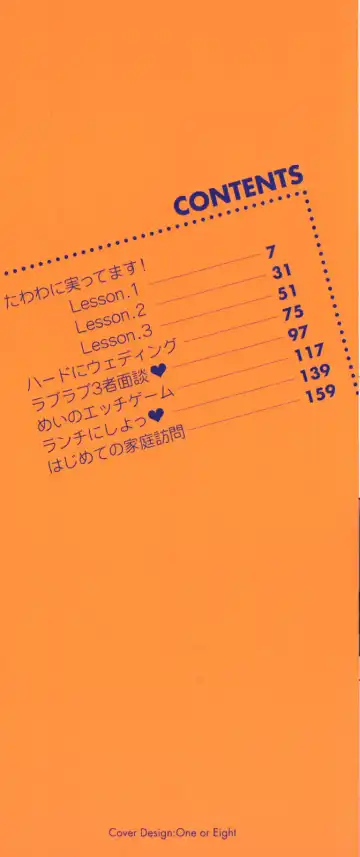 CONTENTS
たわわに実ってます!
Lesson.1 7
Lesson.2 31
Lesson.3 51
ハードにウェディング 75
ラブラブ3者面談♥ 97
めいのエッチゲーム 117
ランチにしよっ♥ 139
はじめての家庭訪問 159
Cover Design:One or Eight